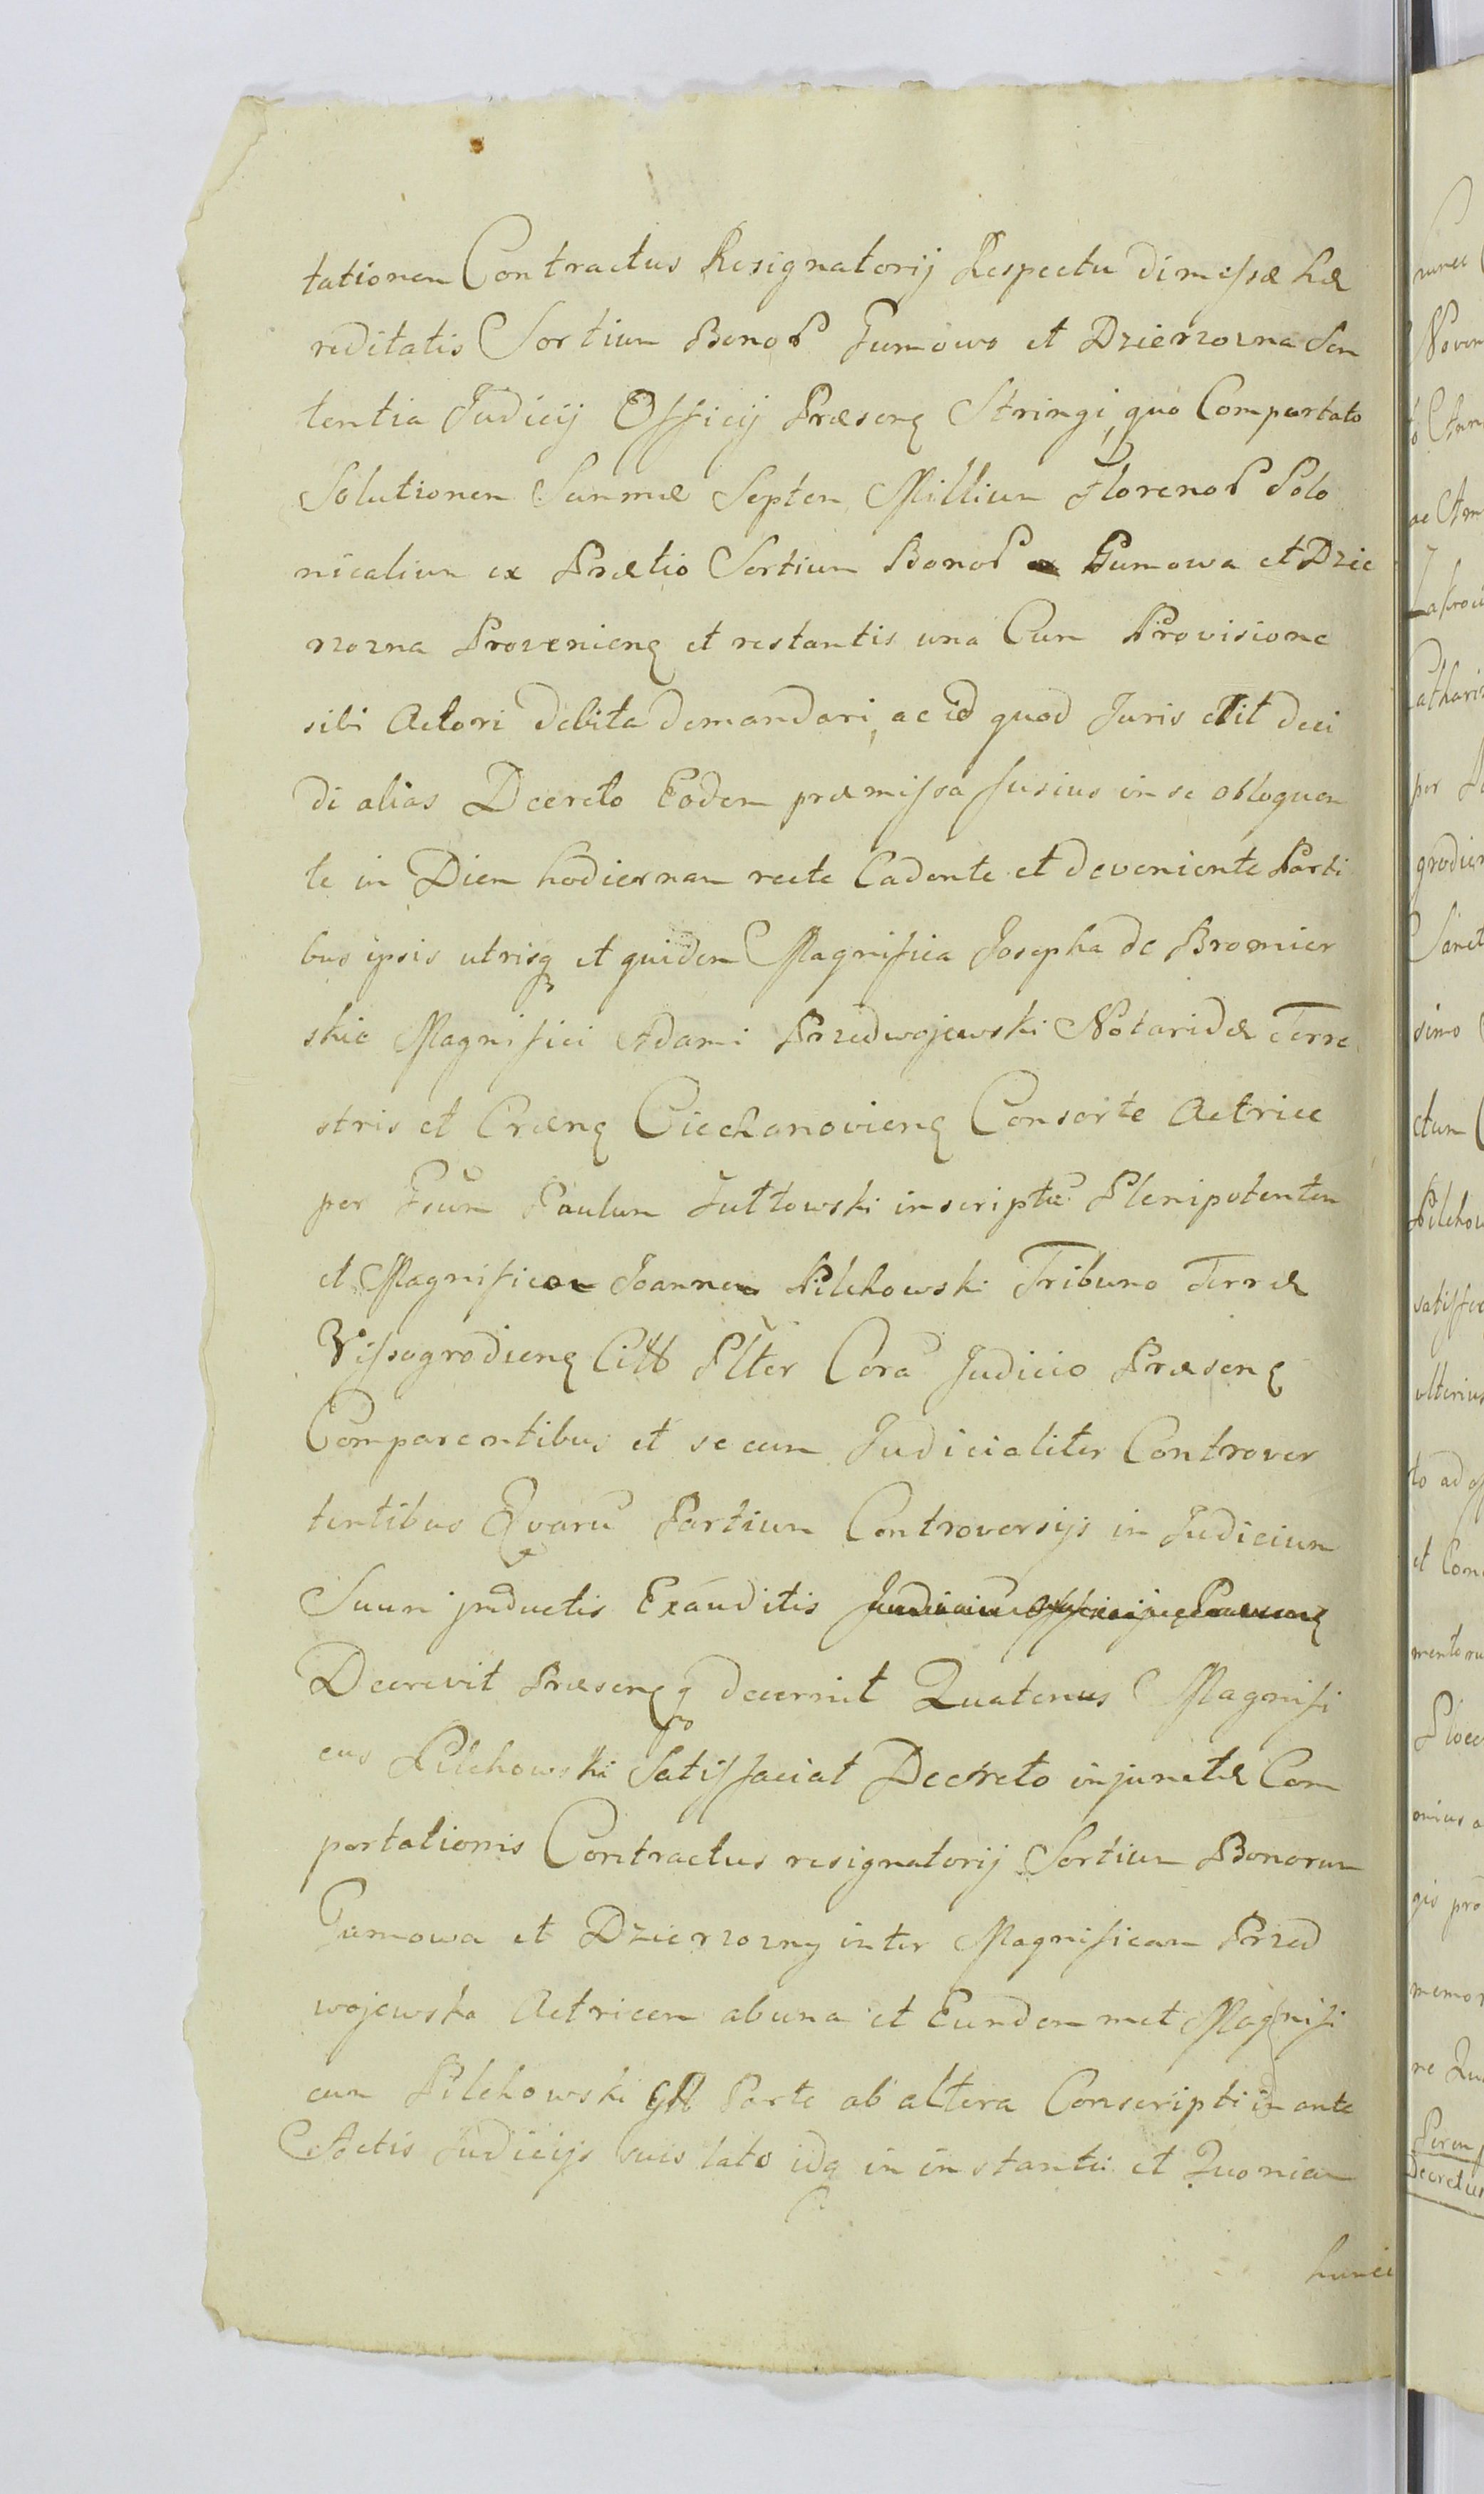 tationem Contractus Resignatorij Respectu dimissæ hæ
reditatis Sortium Bonor Gumowo et Dzierzozna Sen
tentia Judicij Officij Præsenq Stringi, quo Comportato
Solutionem Summæ Septem Millium Florenor Polo
nicalium ex Prætio Sortium Bonor Gumowa et Dzie
rzozna Provenienq et restantis una Cum Provisione
sibi Actori debita demandari, ac id quod Juris erit deci
di alias Decreto Eodem præmissa fusius in se obloquen
te in Diem hodiernam recte Cadente et deveniente Parti
bus ipsis utrisq et quidem Magnifica Josepha de Bromier
skie Magnifici Adami Przedwojewski Notaridæ Terre
stris et Crænq Ciechanovienq Consorte Actrice
per Fsum Paulum Jułtowski inscriptū Plenipotentem
et Magnificum Joannem Pilchowski Tribuno Terræ
Vissogrodienq Citt Plter Corā Judicio Præsenq
Comparentibus et secum Judicialiter Controver
tentibus Quarū Partium Controversijs in Judicium
Suum inductis Exauditis Judiciū Officij Præsenq
Decrevit Præsenq q decernit Quatenus Magnifi
cus Pilchowski Satisfaciat Decreto injunctæ Com
portationis Contractus resignatorij Sortium Bonorum
Gumowa et Dzierzozny inter Magnificam Przed
wojewska Actricem ab una et Eundem met Magnifi
cum Pilchowski Citt Parte ab altera Conscripti in ante
Actis Judicijs suis lato idq in instanti et Quoniam
hunci